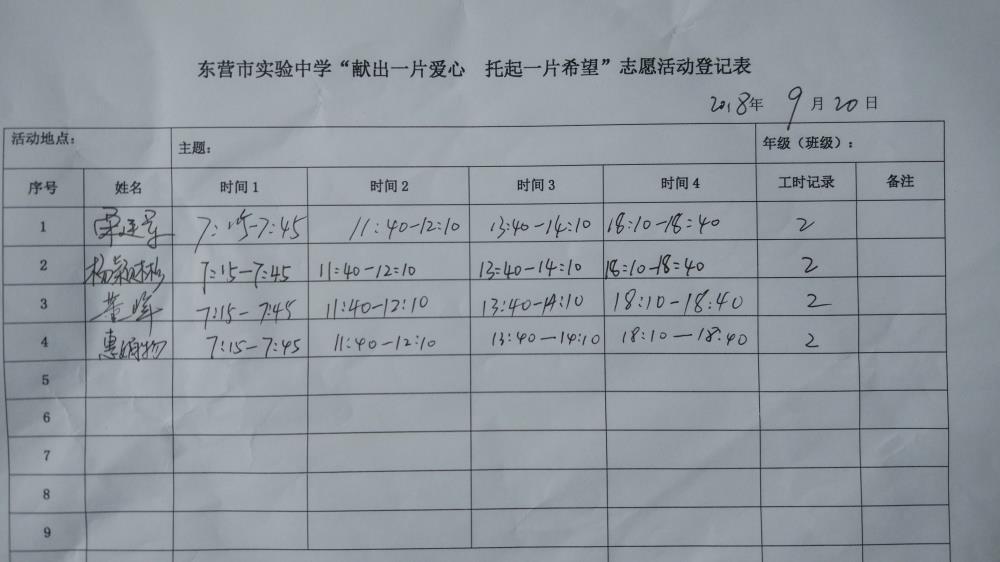 东营市实验中学“献出一片爱心 托起一片希望”志愿活动登记表
2018年 9月20日
活动地点： 主题： 年级（班级）：
序号 姓名 时间1 时间2 时间3 时间4 工时记录 备注
1 7:15-7:45 11:40-12:10 13:40-14:10 18:10-18:40 2
2 杨颖彬 7:15-7:45 11:40-12:10 13:40-14:10 18:10-18:40 2
3 7:15-7:45 11:40-12:10 13:40-14:10 18:10-18:40 2
4 7:15-7:45 11:40-12:10 13:40-14:10 18:10-18:40 2
5
6
7
8
9